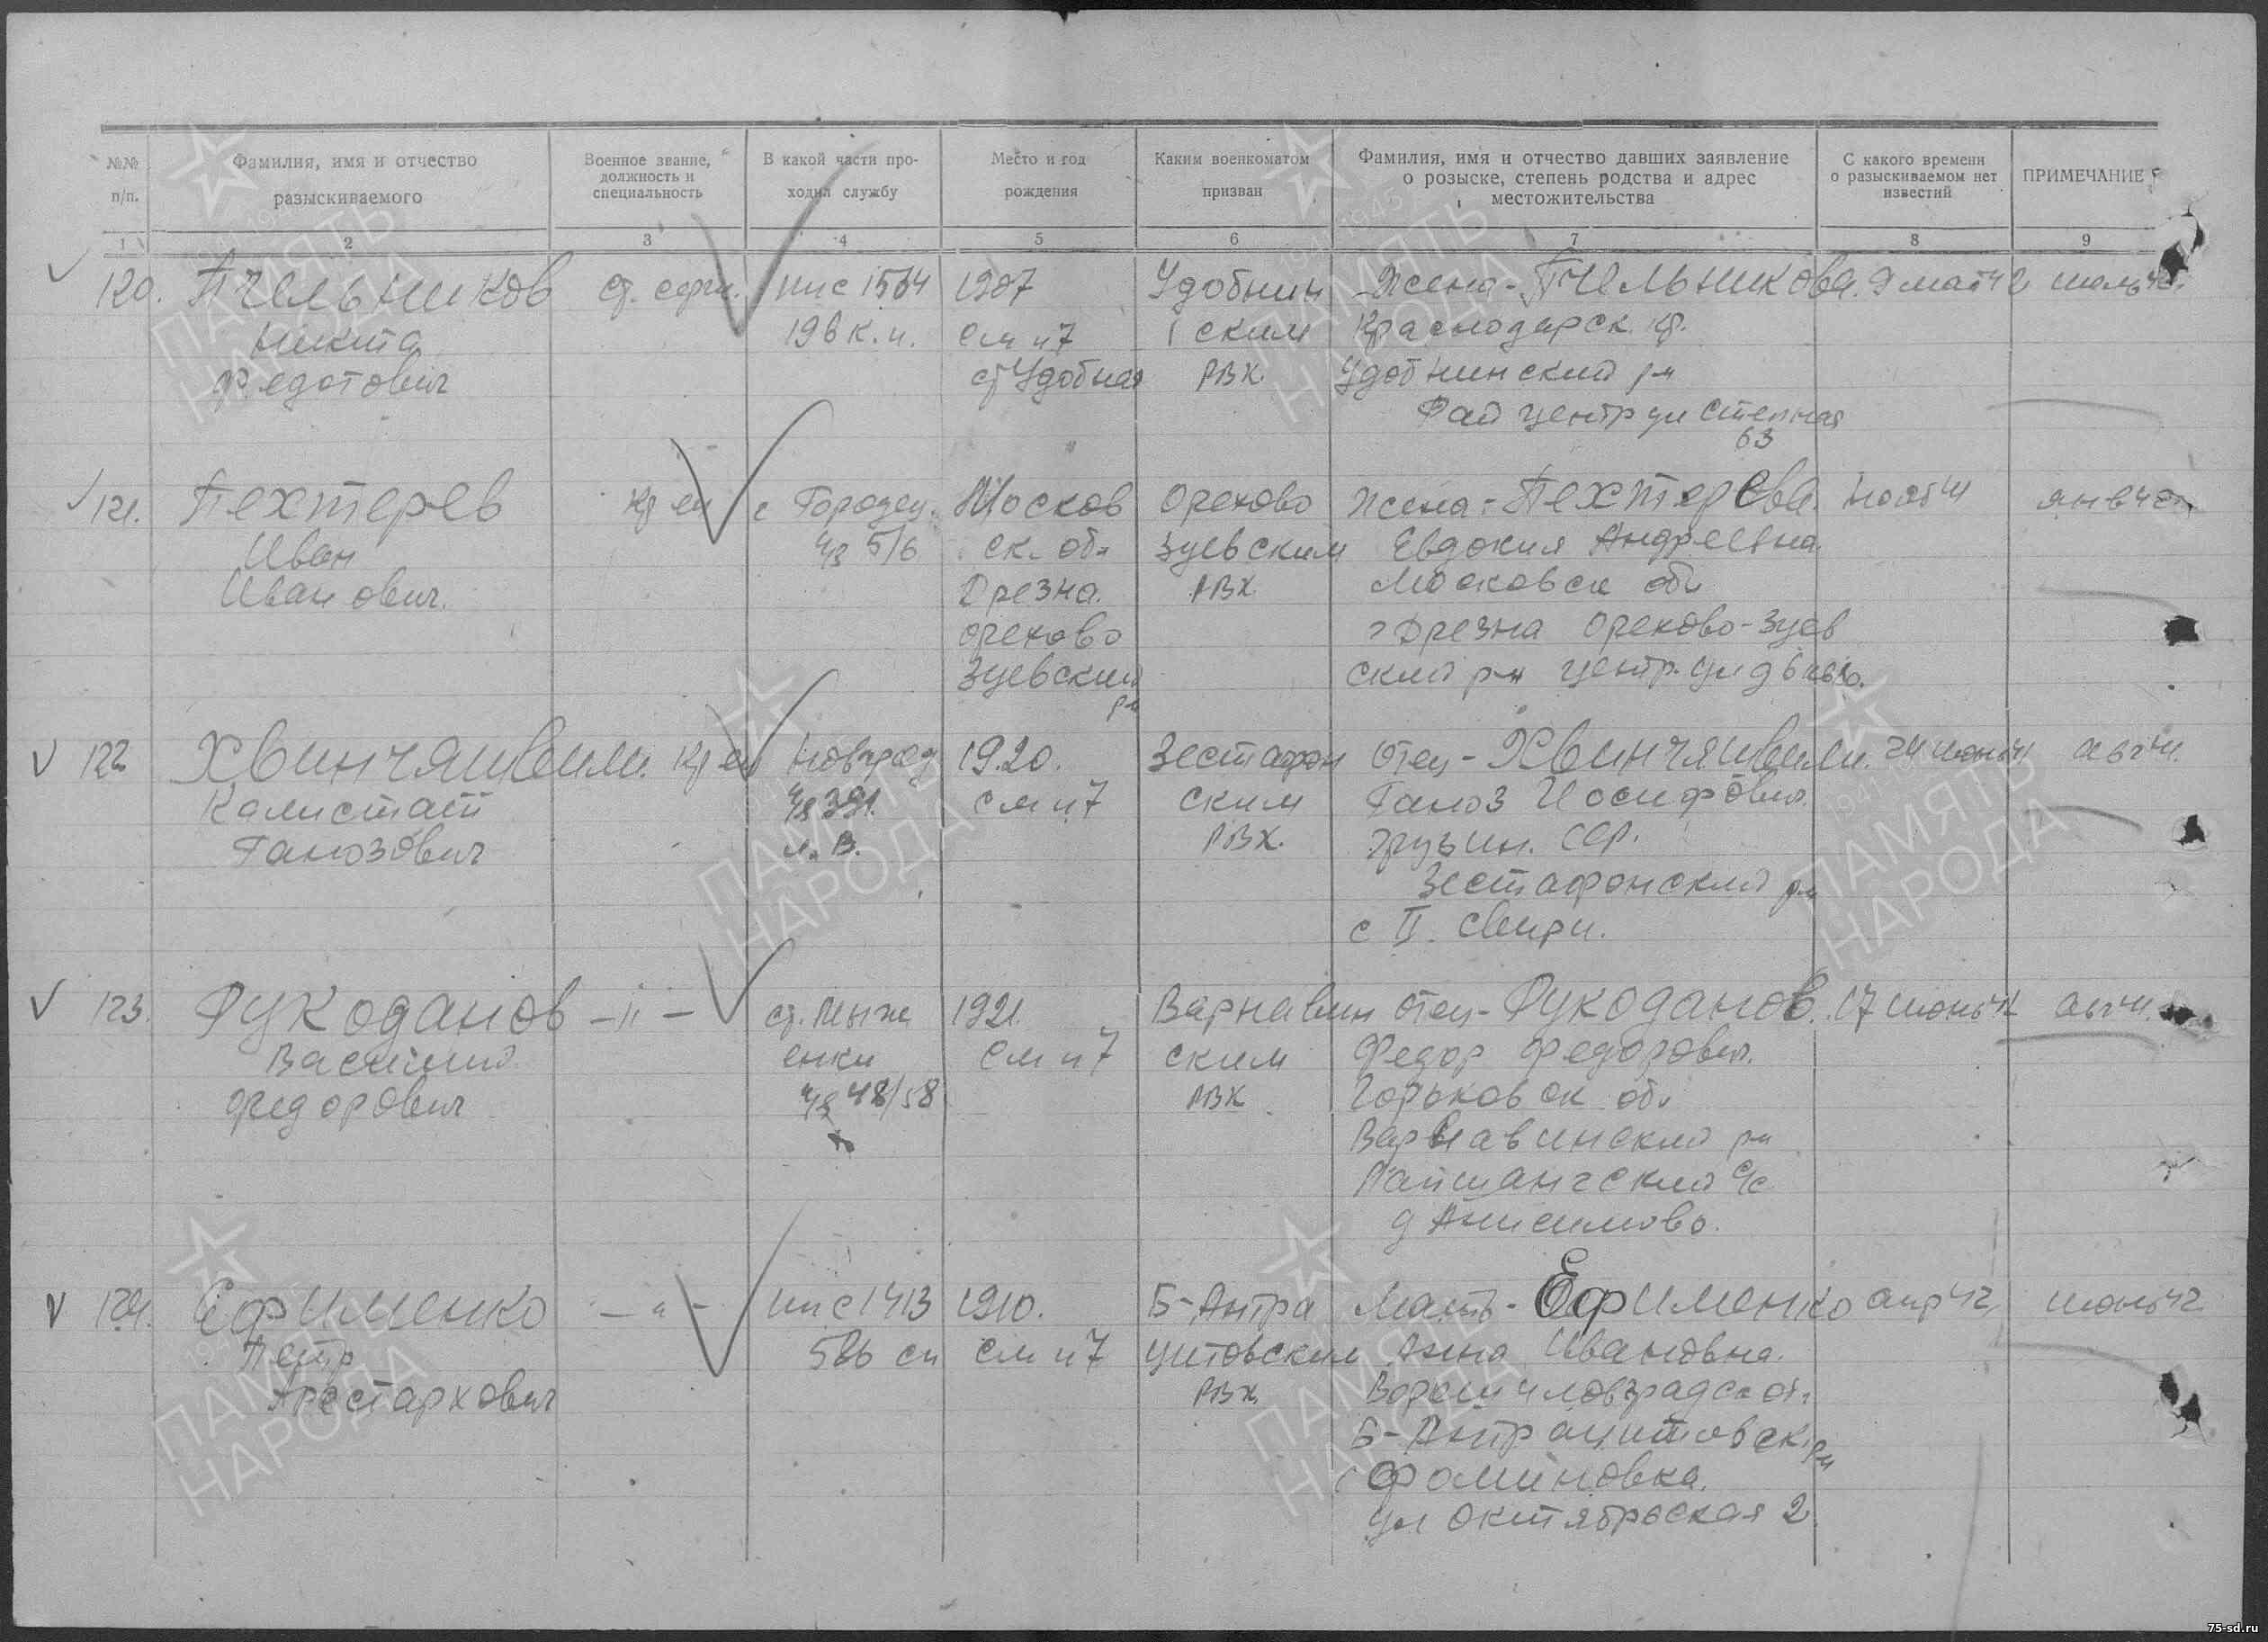 №№ п/п.
Фамилия, имя и отчество разыскиваемого
Военное звание, должность и специальность
В какой части проходил службу
Место и год рождения
Каким военкоматом призван
Фамилия, имя и отчество давших заявление о розыске, степень родства и адрес местожительства
С какого времени о разыскиваемом нет известий
ПРИМЕЧАНИЕ
1 2 3 4 5 6 7 8 9
120. Пчельников ст. серж. ппс 1564 1907 Удобнин Жена - Пчельникова. 9 мая 42
Никита 196 к.п. см п7 ским Краснодарск. кр.
Федотович ст Удобная РВК. Удобнинский р-н
Рай центр ул Степная
63
121. Пехтерев кр-ец с Городец. Москов Орехово Жена - Пехтерева. нояб 41 янв 42
Иван 5/6 ск. обл Зуевским Евдокия Андреевна.
Иванович. Дрезна. РВК Московск обл
Орехово г Дрезна Орехово-Зуев
Зуевский ский р-н центр. ул д 6 кв 10.
р-н
122 Хвинчяшвили. кр-ец Новград 1920. Зестафон Отец - Хвинчяшвили. 24 июня 41 авг 41.
Калистат 391. см п7 ским Ганоз Иосифович.
Ганозович п. В. РВК. Грузин. ССР.
Зестафонский р-н
с II. Свири.
123. Рукоданов - " - ст. Мыже 1921. Варнавин Отец - Рукоданов. 17 июня 41 авг 41.
Василий енки см п7 ским Федор Федорович.
Федорович 48/58 РВК Горьковск обл
Варнавинский р-н
с/с
д Анисимово.
124. Ефименко - " - ппс 1413 1910. Б-Антра Мать - Ефименко апр 42 июль 42
Петр 586 сп см п7 цитовским Анна Ивановна.
Арестархович РВК Ворошиловградск обл
Б-Антрацитовск р-н
Фоминовка.
ул Октябрьская 2.
ПАМЯТЬ
НАРОДА
75-sd.ru